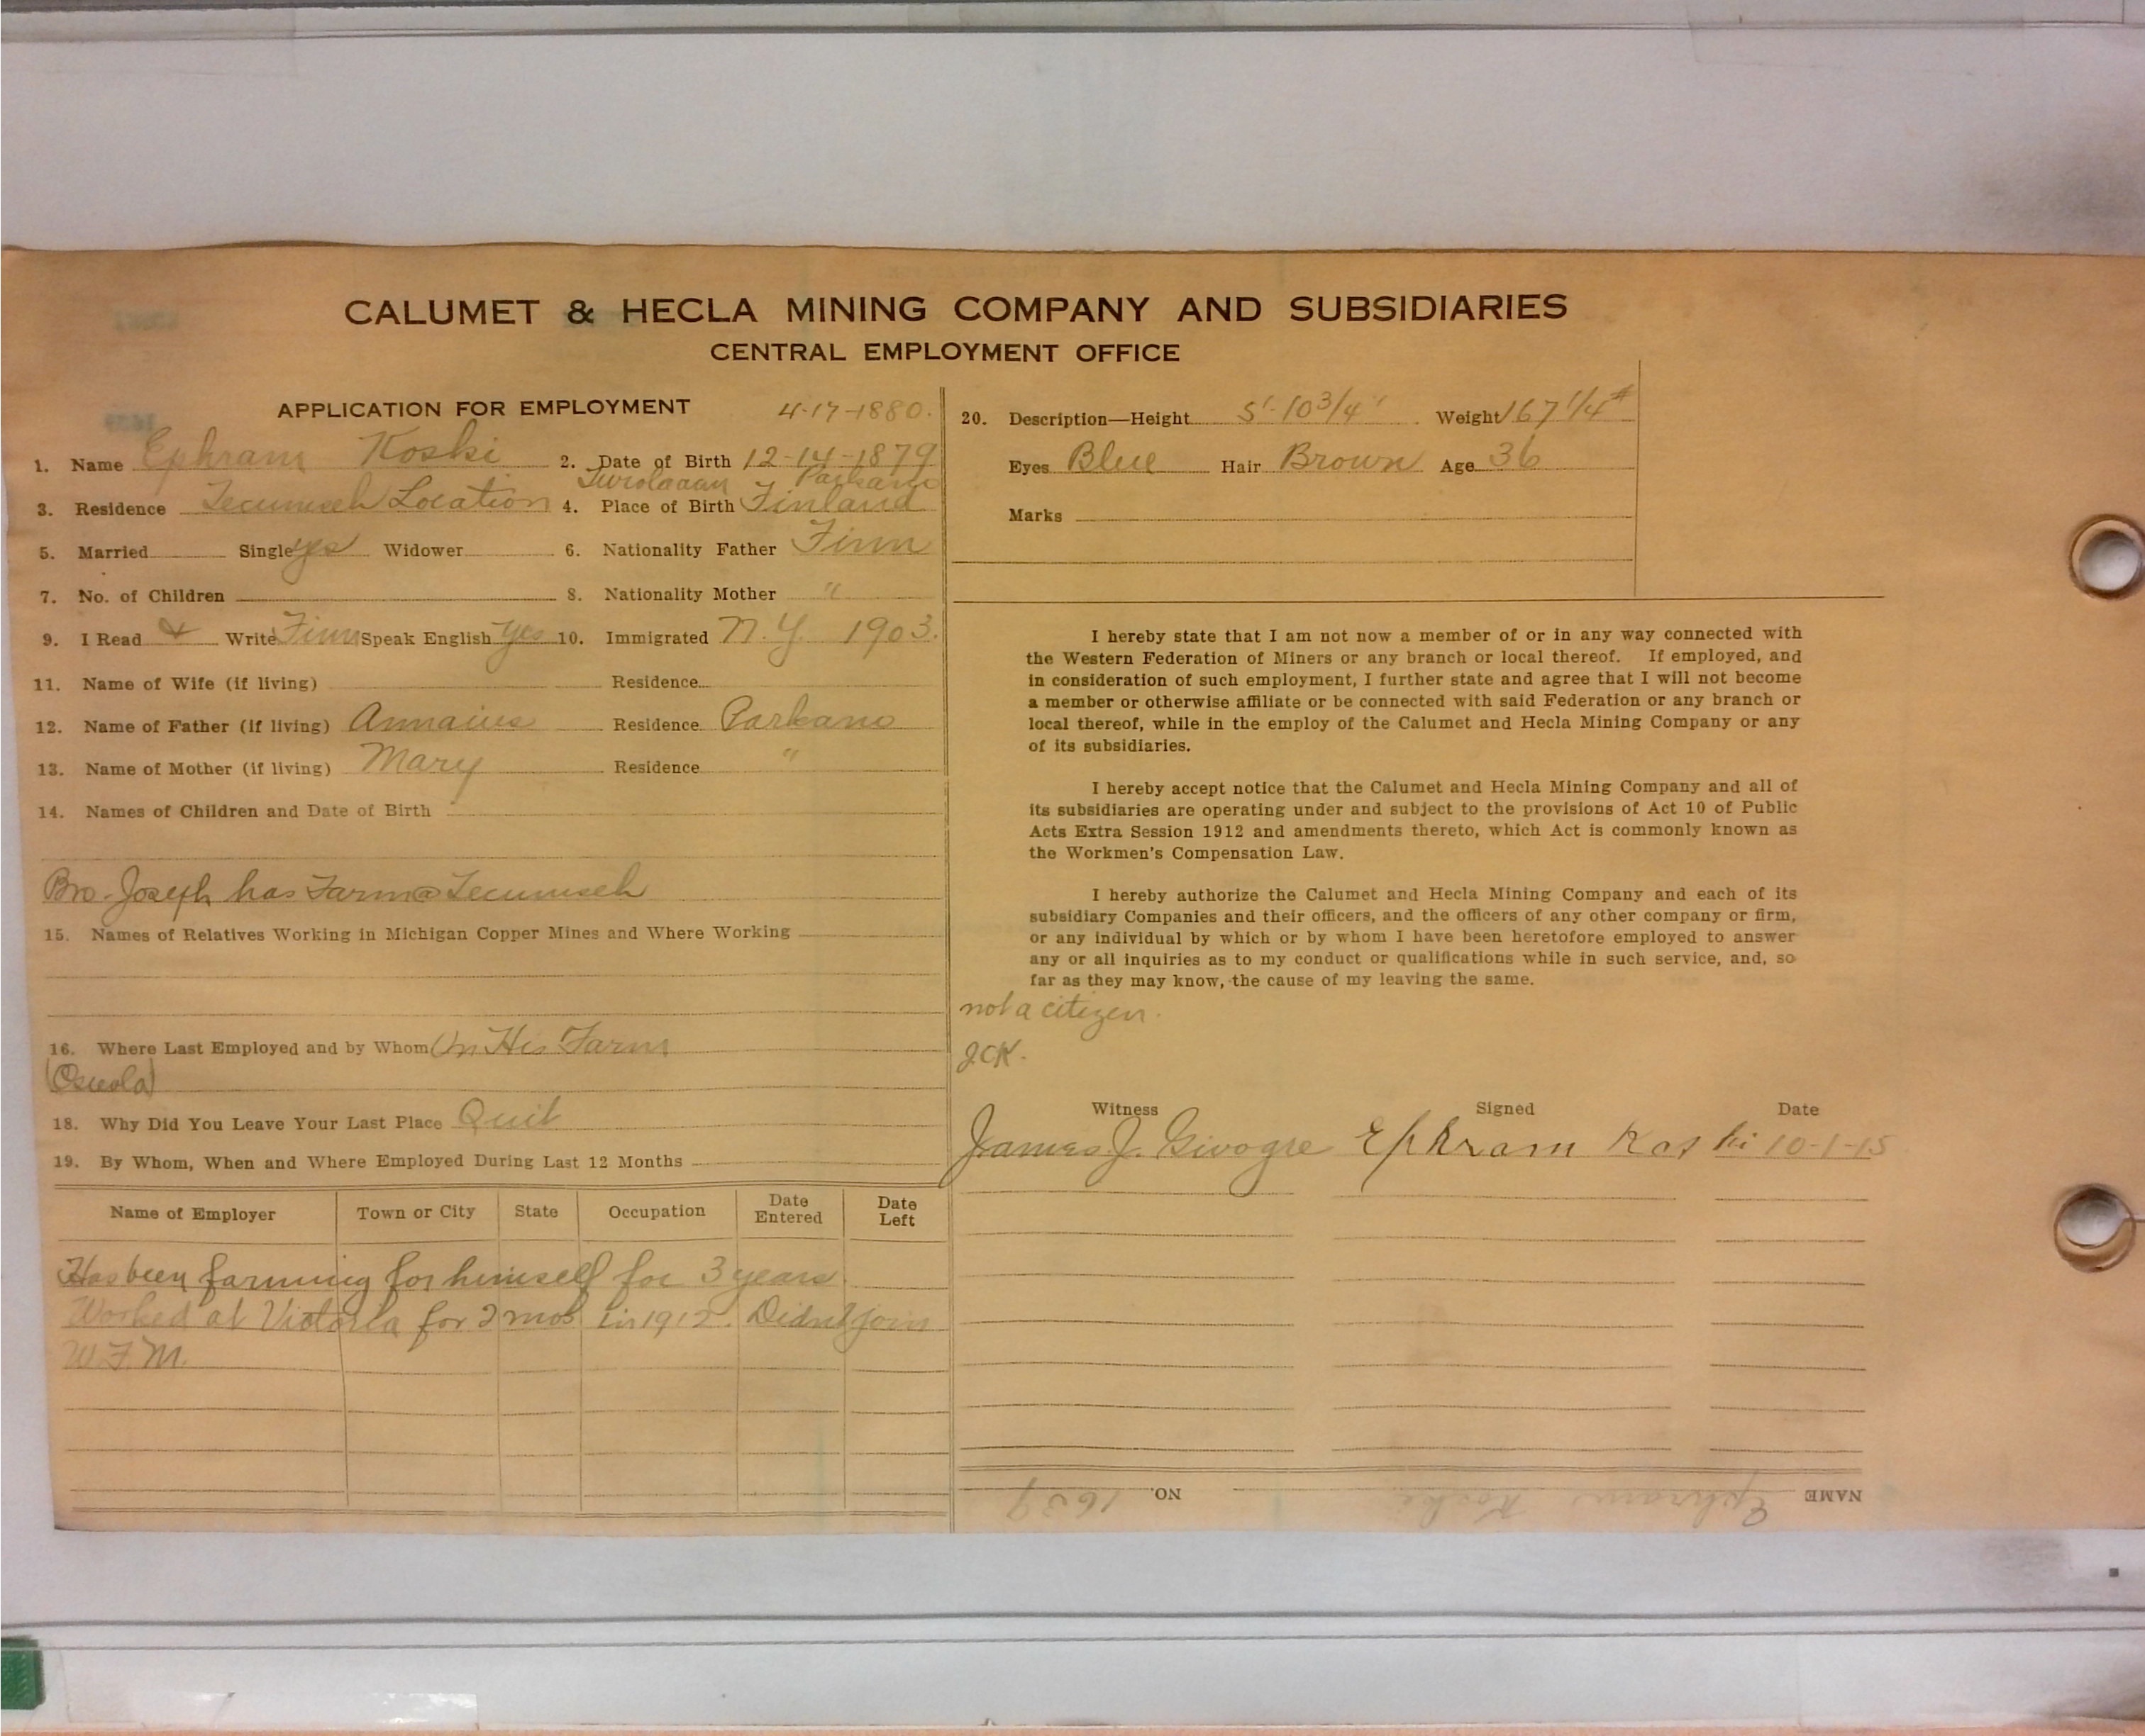 CALUMET & HECLA MINING COMPANY AND SUBSIDIARIES
CENTRAL EMPLOYMENT OFFICE
APPLICATION FOR EMPLOYMENT 4-17-1880.
1. Name Ephram Koski 2. Date of Birth 12-14-1879
Parkano
3. Residence Tecumseh Location 4. Place of Birth Finland
5. Married Single yes Widower 6. Nationality Father Finn
7. No. of Children 8. Nationality Mother "
9. I Read & Write Finn Speak English yes 10. Immigrated N.Y. 1903.
11. Name of Wife (if living) Residence
12. Name of Father (if living) Residence Parkano
13. Name of Mother (if living) Mary Residence "
14. Names of Children and Date of Birth
Bro. Joseph has Farm @ Tecumseh
15. Names of Relatives Working in Michigan Copper Mines and Where Working
16. Where Last Employed and by Whom On His Farm
(Osceola)
18. Why Did You Leave Your Last Place Quit
19. By Whom, When and Where Employed During Last 12 Months
Name of Employer Town or City State Occupation Date Entered Date Left
Has been farming for himself for 3 years
Worked at Victoria for 2 mos in 1912. Didn't join
W.F.M.
20. Description—Height 5'-10 3/4" Weight 167 1/4 #
Eyes Blue Hair Brown Age 36
Marks
I hereby state that I am not now a member of or in any way connected with
the Western Federation of Miners or any branch or local thereof. If employed, and
in consideration of such employment, I further state and agree that I will not become
a member or otherwise affiliate or be connected with said Federation or any branch or
local thereof, while in the employ of the Calumet and Hecla Mining Company or any
of its subsidiaries.
I hereby accept notice that the Calumet and Hecla Mining Company and all of
its subsidiaries are operating under and subject to the provisions of Act 10 of Public
Acts Extra Session 1912 and amendments thereto, which Act is commonly known as
the Workmen's Compensation Law.
I hereby authorize the Calumet and Hecla Mining Company and each of its
subsidiary Companies and their officers, and the officers of any other company or firm,
or any individual by which or by whom I have been heretofore employed to answer
any or all inquiries as to my conduct or qualifications while in such service, and, so
far as they may know, the cause of my leaving the same.
not a citizen.
JCK.
Witness Signed Date
James J. Ephram Koski 10-1-15
NAME Ephram Koski NO. 1639